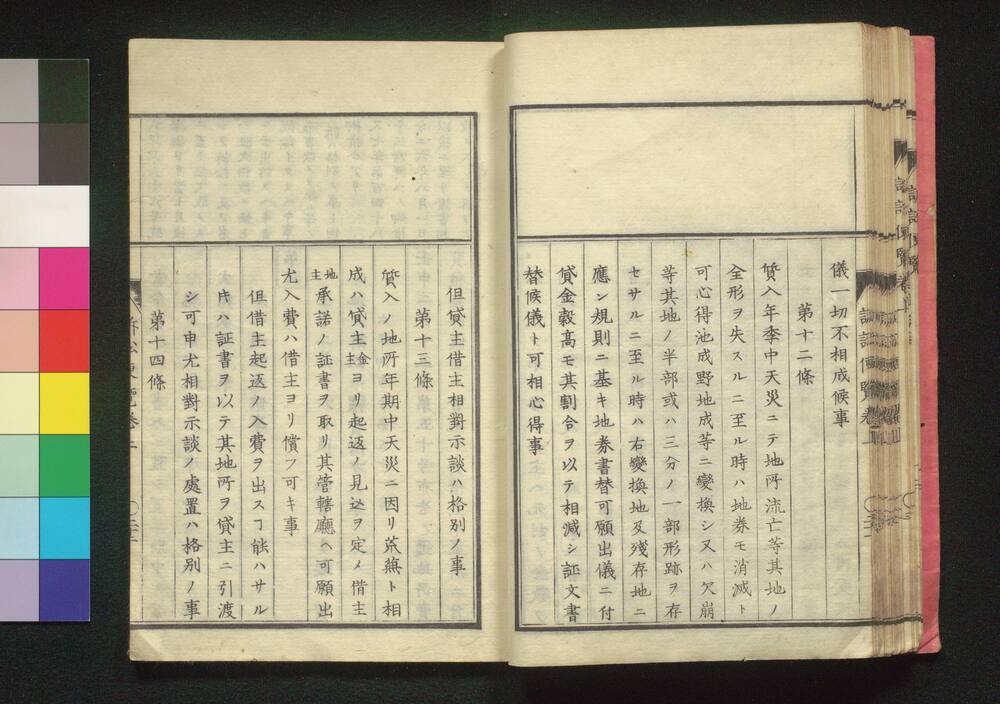 儀一切不相成候事
第十二條
質入年季中天災ニテ地所流亡等其地ノ
全形ヲ失スルニ至ル時ハ地券モ消滅ト
可心得池成野地成等ニ變換シ又ハ欠崩
等其地ノ半部或ハ三分ノ一部形跡ヲ存
セサルニ至ル時ハ右變換地及殘存地ニ
應シ規則ニ基キ地券書替可願出儀ニ付
貸金穀高モ其割合ヲ以テ相減シ証文書
替候儀ト可相心得事
但貸主借主相對示談ハ格別ノ事
第十三條
質入ノ地所年期中天災ニ因リ荒蕪ト相
成ハ貸主金主ヨリ起返ノ見込ヲ定メ借主
地主承諾ノ証書ヲ取リ其管轄廳ヘ可願出
尤入費ハ借主ヨリ償フ可キ事
但借主起返ノ入費ヲ出スヿ能ハサル
キハ証書ヲ以テ其地所ヲ貸主ニ引渡
シ可申尤相對示談ノ處置ハ格別ノ事
第十四條